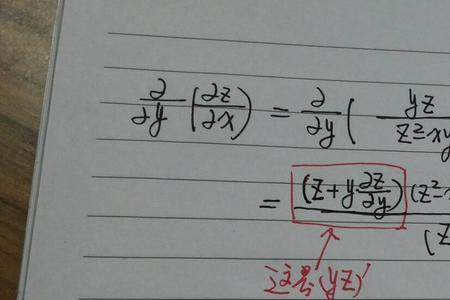 ∂/∂y (∂z/∂x) = ∂/∂y ( yz/z²-xy
= (z+y ∂z/∂y) (z²-
(z
这是(yz)'